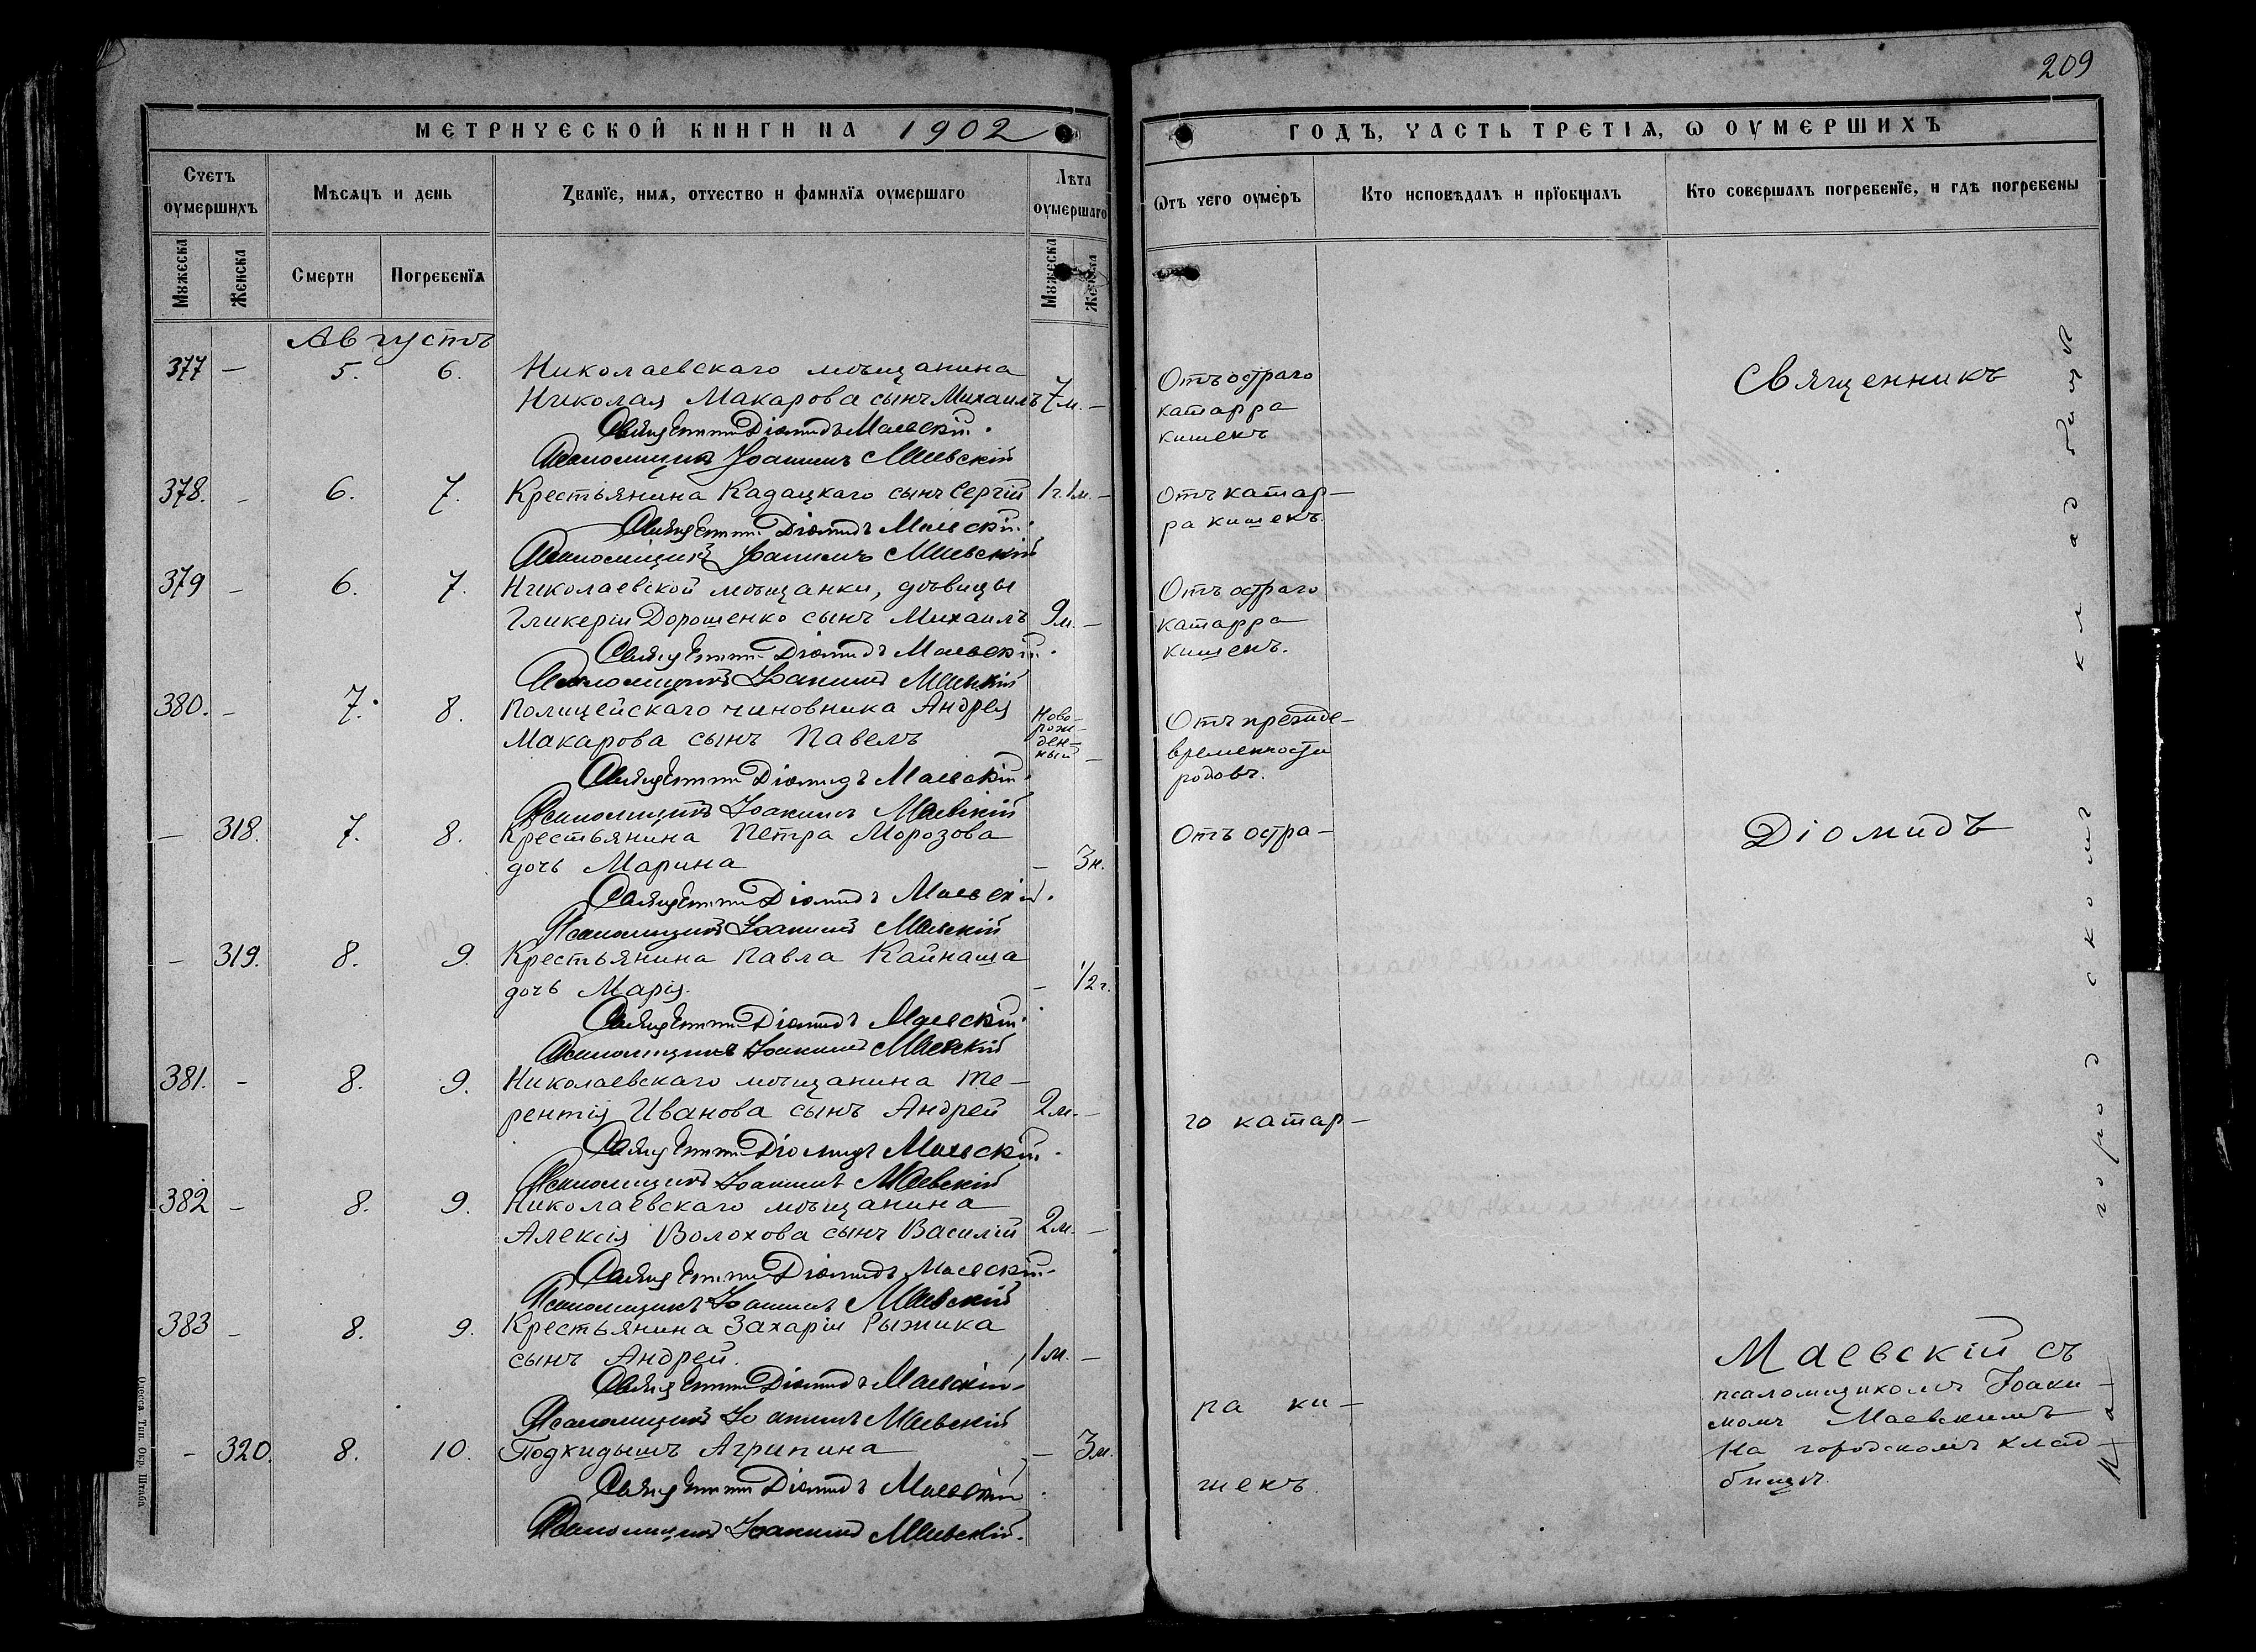 209
МЕТРИЧЕСКОЙ КНИГИ НА 1902
ГОДЪ, ЧАСТЬ ТРЕТІѦ, Ѡ ОУМЕРШИХЪ
Счетъ оумершихъ
Мѣсѧцъ и день
Званїе, имѧ, отчество и фамилїѧ оумершаго
Лѣта оумершаго
Ѿтъ чего оумеръ
Кто исповѣдалъ и прїобщалъ
Кто совершалъ погребенїе, и гдѣ погребены
Мꙋжеска
Женска
Смерти
Погребенїѧ
Мꙋжеска
Женска
Августъ
377 — 5. 6. Николаевскаго мѣщанина
Николая Макарова сынъ Михаилъ 7 м. —
Отъ остраго
катарра
кишекъ
Священникъ Діомидъ Маевскій.
Псаломщикъ Іоакимъ Маевскій
378. - 6. 7. Крестьянина Кадацкаго сынъ Сергій 1 г. 1 м. —
Отъ катар-
ра кишекъ.
Священникъ Діомидъ Маевскій.
Псаломщикъ Іоакимъ Маевскій
379 - 6. 7. Николаевской мѣщанки, дѣвицы
Гликеріи Дорошенко сынъ Михаилъ 9 м. —
Отъ остраго
катарра
кишекъ.
Священникъ Діомидъ Маевскій.
Псаломщикъ Іоакимъ Маевскій
380. - 7. 8. Полицейскаго чиновника Андрея
Макарова сынъ Павелъ
Ново-
рож-
ден-
ный —
Отъ прежде-
временности
родовъ.
Священникъ Діомидъ Маевскій.
Псаломщикъ Іоакимъ Маевскій
— 318. 7. 8. Крестьянина Петра Морозова
дочь Марина — 3 н.
Священникъ Діомидъ Маевскій.
Псаломщикъ Іоакимъ Маевскій
- 319. 8. 9. Крестьянина Павла Кайнаша
дочь Марія. — 1/2 г.
Священникъ Діомидъ Маевскій.
Псаломщикъ Іоакимъ Маевскій
381. - 8. 9. Николаевскаго мѣщанина Те-
рентія Иванова сынъ Андрей 2 м. —
Священникъ Діомидъ Маевскій.
Псаломщикъ Іоакимъ Маевскій
382 - 8. 9. Николаевскаго мѣщанина
Алексія Волохова сынъ Василій 2 м. —
Священникъ Діомидъ Маевскій.
Псаломщикъ Іоакимъ Маевскій
383 - 8. 9. Крестьянина Захаріи Рыжика
сынъ Андрей. 1 м. —
Священникъ Діомидъ Маевскій.
Псаломщикъ Іоакимъ Маевскій
- 320. 8. 10. Подкидышъ Агрипина — 3 м.
Священникъ Діомидъ Маевскій.
Псаломщикъ Іоакимъ Маевскій.
Отъ остра-
го катар-
ра ки-
шекъ.
Священникъ
Діомидъ
Маевскій съ
псаломщикомъ Іоаки-
момъ Маевскимъ
На городскомъ клад-
бищѣ.
На городскомъ кладбищѣ
Одесса. Тип. Окр. Штаба